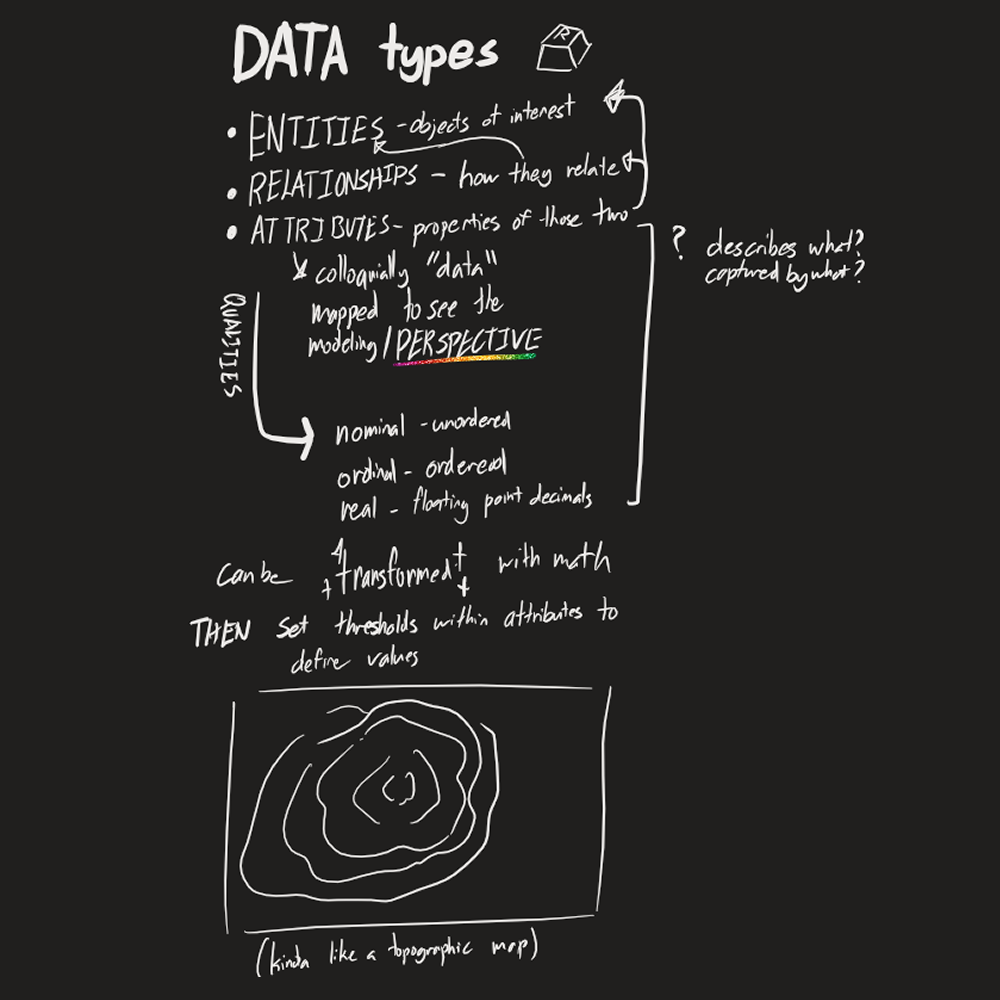 DATA types R
• ENTITIES - objects of interest
• RELATIONSHIPS - how they relate
• ATTRIBUTES - properties of those two
? describes what?
captured by what?
colloquially "data"
mapped to see the
modeling / PERSPECTIVE
QUALITIES
nominal - unordered
ordinal - ordered
real - floating point decimals
can be transformed with math
THEN set thresholds within attributes to
define values
(kinda like a topographic map)